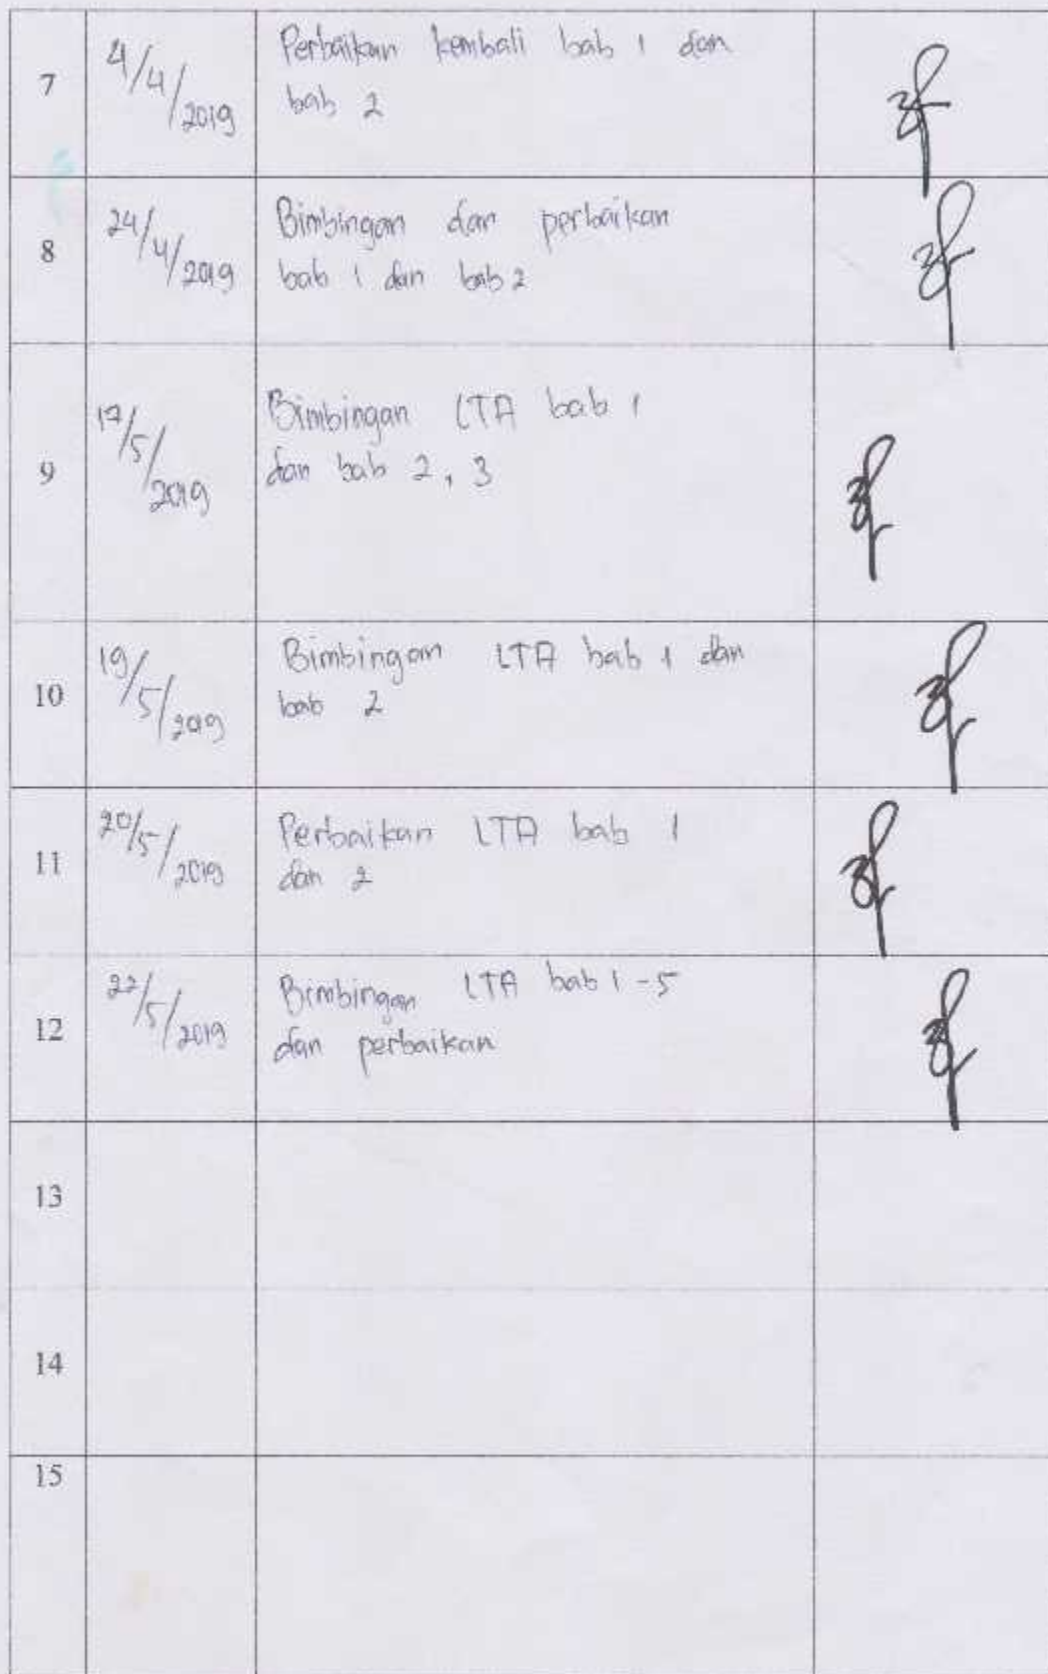 7 4/4/2019 Perbaikan kembali bab 1 dan
bab 2
8 24/4/2019 Bimbingan dan perbaikan
bab 1 dan bab 2
9 17/5/2019 Bimbingan LTA bab 1
dan bab 2, 3
10 19/5/2019 Bimbingan LTA bab 1 dan
bab 2
11 20/5/2019 Perbaikan LTA bab 1
dan 2
12 22/5/2019 Bimbingan LTA bab 1-5
dan perbaikan
13
14
15